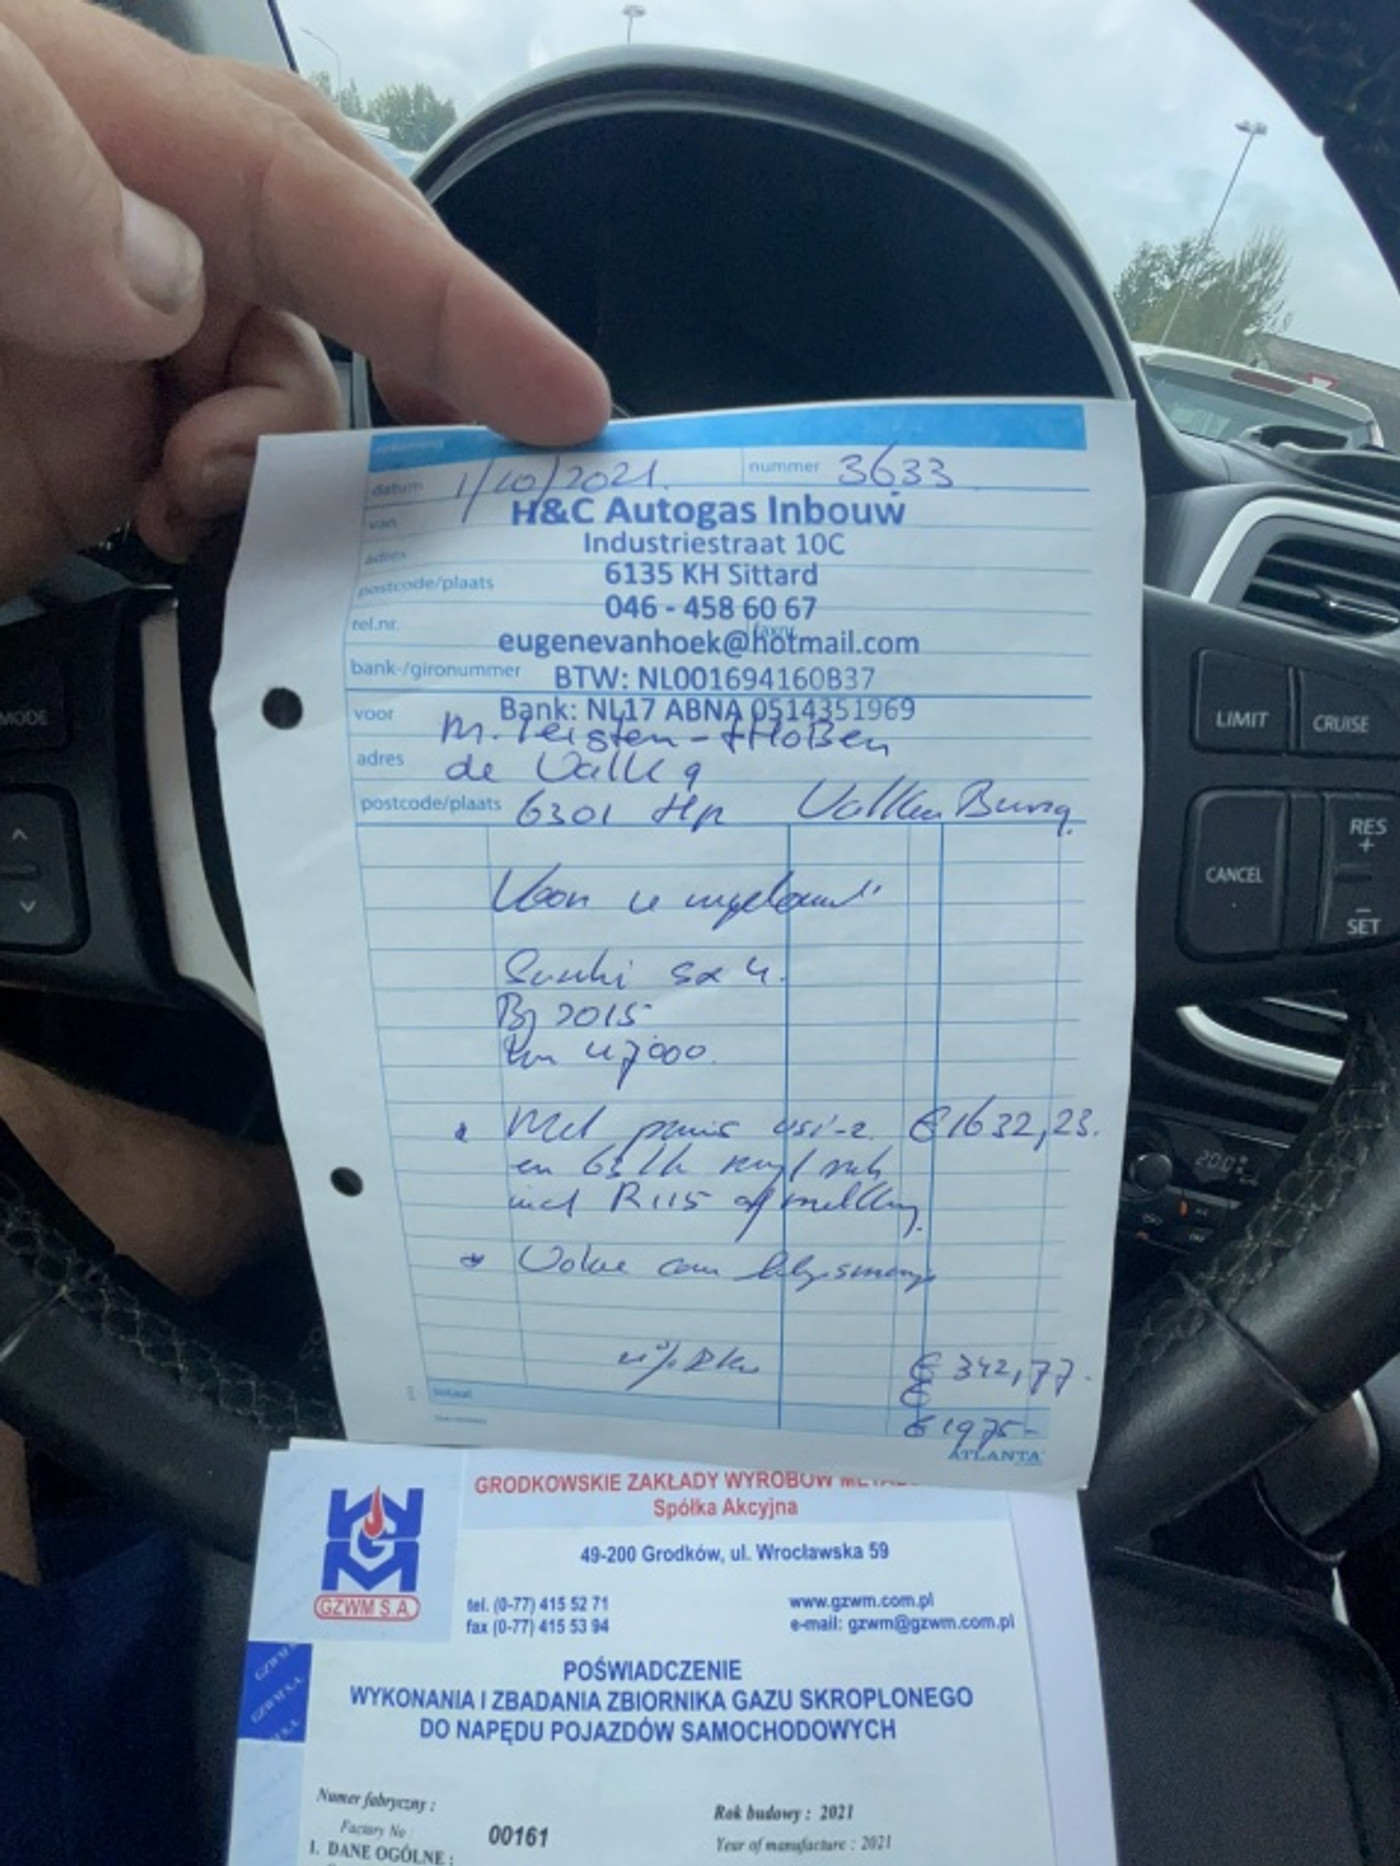 datum 1/10/2021. nummer 3633
van H&C Autogas Inbouw
adres Industriestraat 10C
postcode/plaats 6135 KH Sittard
tel.nr. 046 - 458 60 67 faxnr.
eugenevanhoek@hotmail.com
bank-/gironummer BTW: NL001694160B37
Bank: NL17 ABNA 0514351969
voor M.
adres de Valk 9
postcode/plaats 6301 Hp Valkenburg
Voor u ingebouwd
Suzuki Sx 4.
Bj 2015
km 47000.
* Met prins vsi-2. € 1632,23.
en
incl R115 afmelding.
*
€ 342,77.
€
totaal € 1975-
ATLANTA
GRODKOWSKIE ZAKŁADY WYROBÓW
Spółka Akcyjna
49-200 Grodków, ul. Wrocławska 59
GZWM S.A.
tel. (0-77) 415 52 71 www.gzwm.com.pl
fax (0-77) 415 53 94 e-mail: gzwm@gzwm.com.pl
POŚWIADCZENIE
WYKONANIA I ZBADANIA ZBIORNIKA GAZU SKROPLONEGO
DO NAPĘDU POJAZDÓW SAMOCHODOWYCH
Numer fabryczny : Rok budowy : 2021
Factory No : 00161 Year of manufacture : 2021
1. DANE OGÓLNE :
MODE
LIMIT CRUISE
RES
+
CANCEL
–
SET
20.0